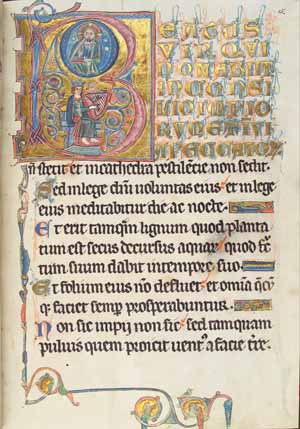 BEATUS
VIR QVI
NON ABIIT
IN CONSI
LIO IMPIO
RVM ET IN VI
A PECCATOR
n̄ stetit et in cathedra pestilencie non sedit.
Sed in lege dn̄i uoluntas eius: et in lege
eius meditabitur die ac nocte.
Et erit tamq̄m lignum quod planta
tum est secus decursus aquar: quod fr̄c
tum suum dabit in tempore suo.
Et folium eius nō defluet: et omīa q̄cū
q; faciet semp prosperabuntur.
Non sic impij non sic: sed tamquam
puluis quem proicit uent' a facie tr̄e.